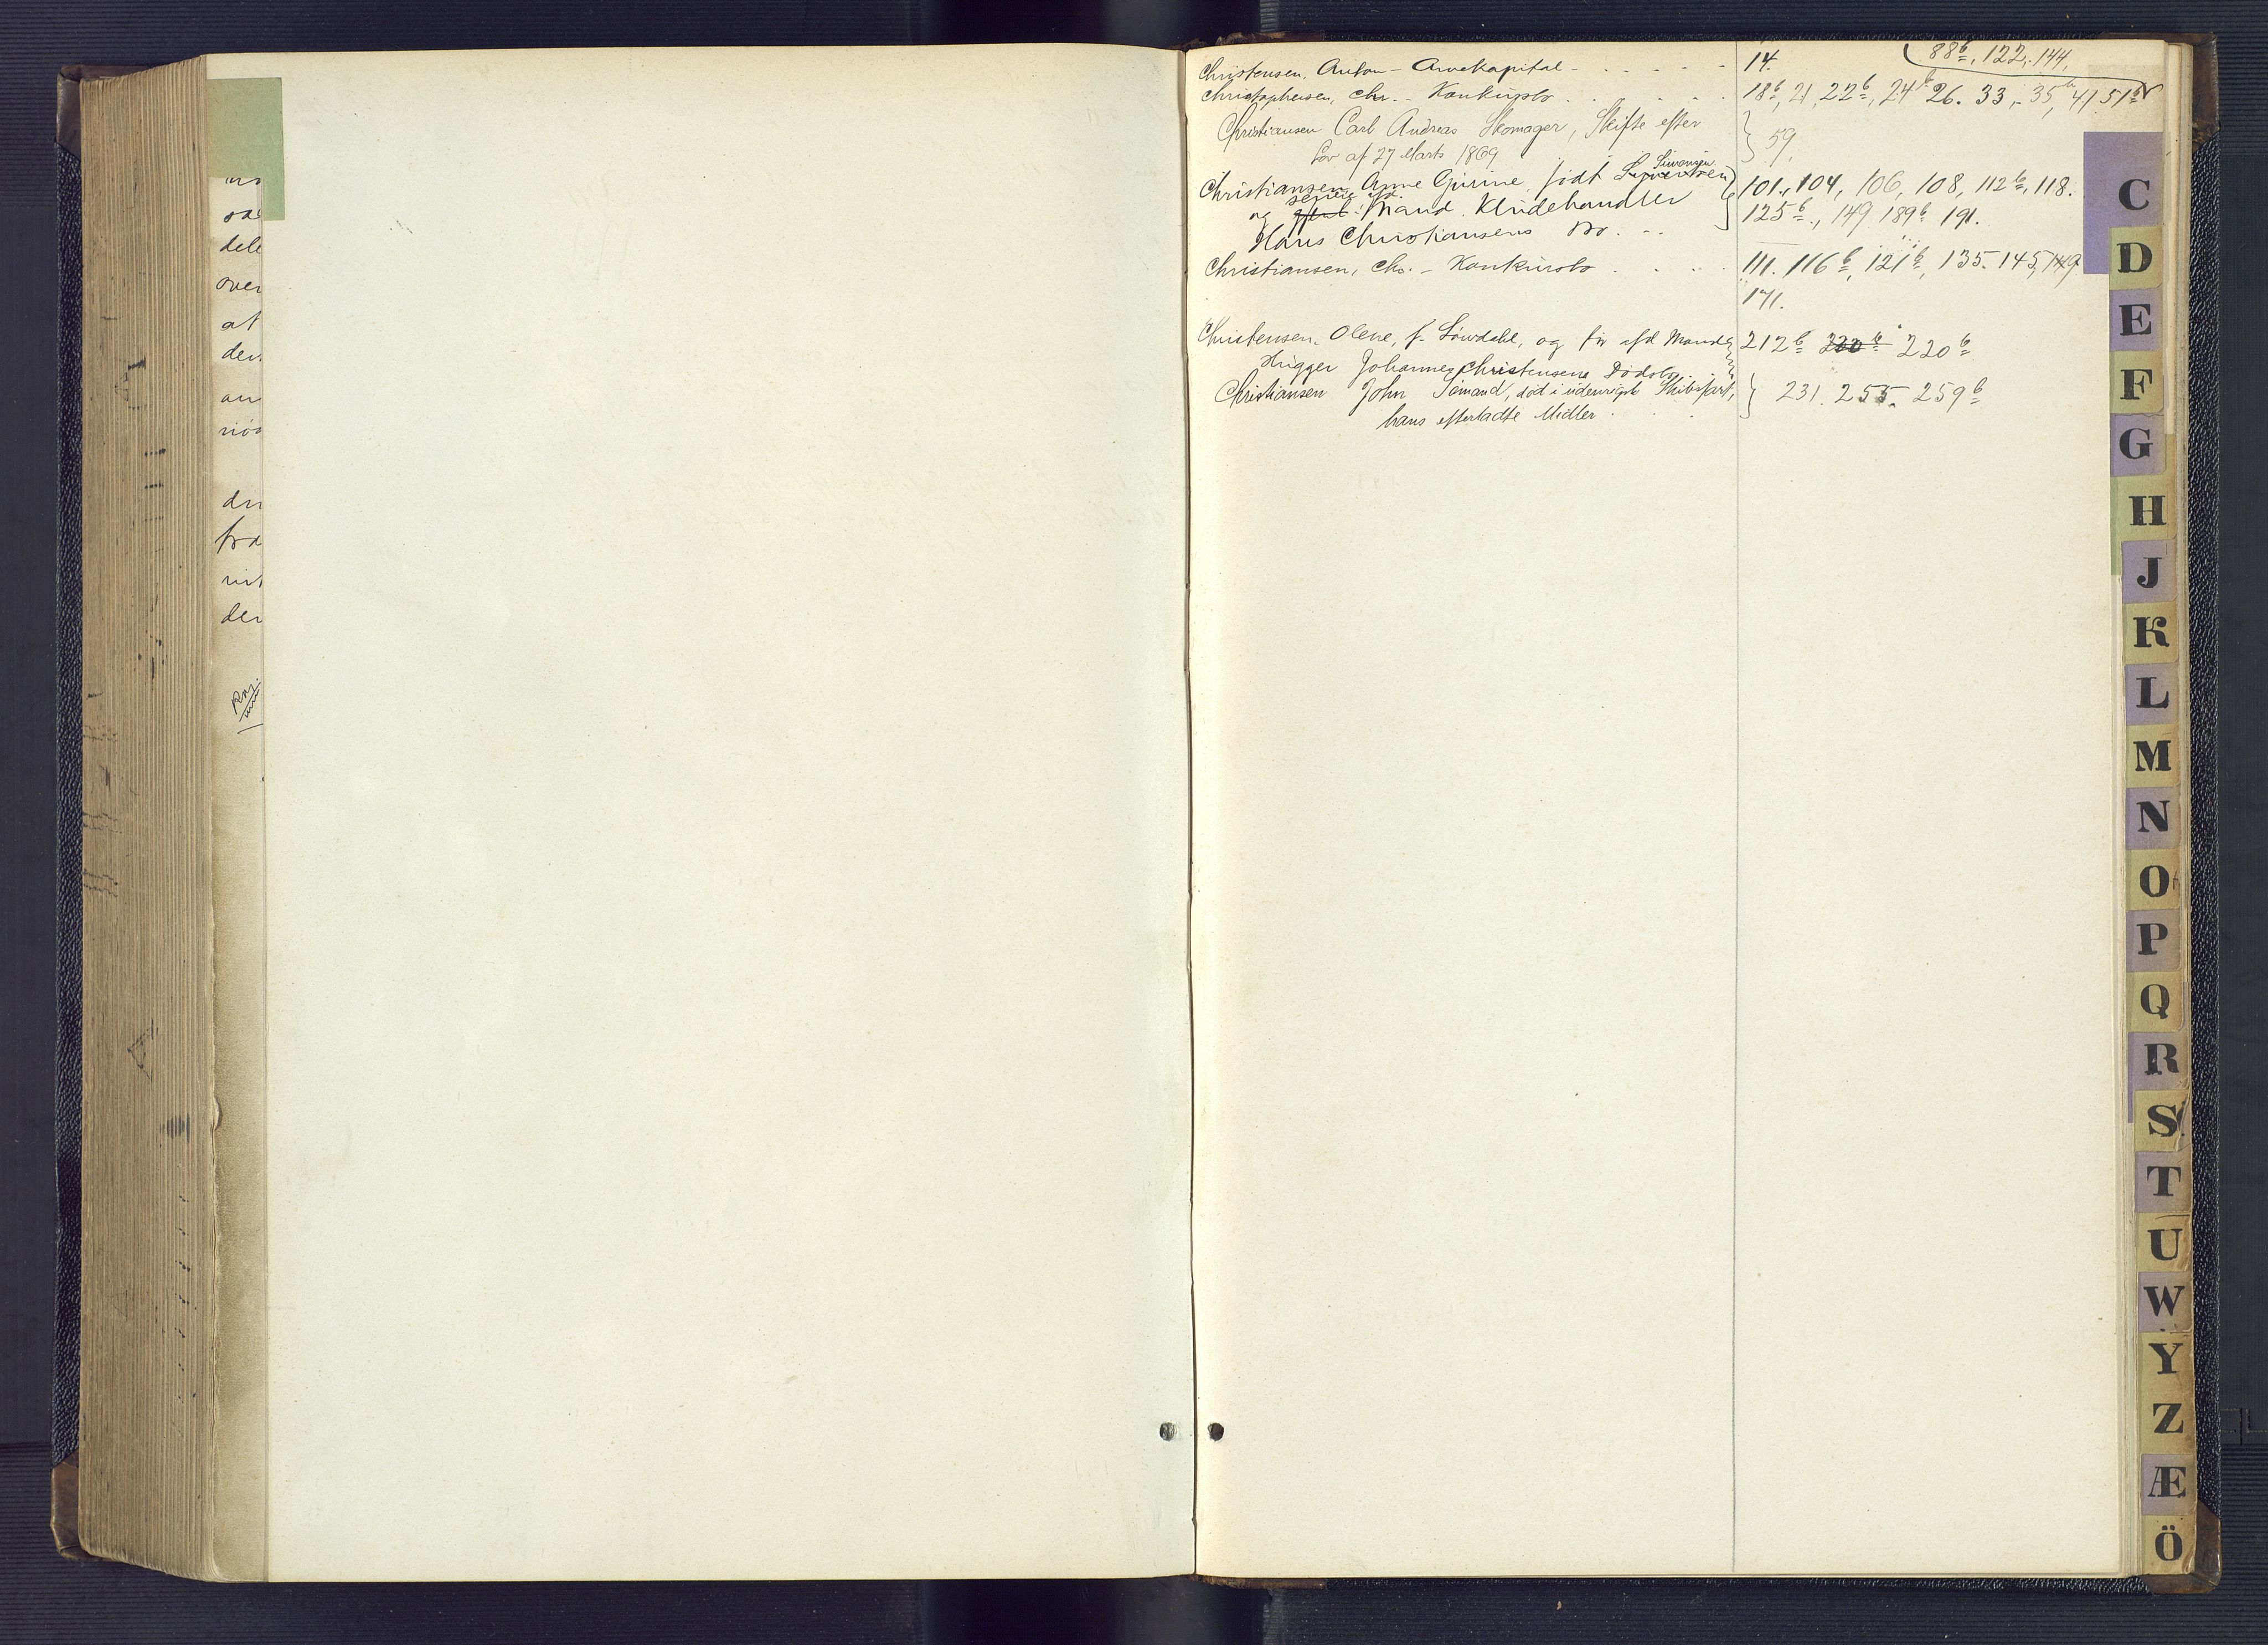 dele
over
at
den
Christensen, Anton – Arvekapital – . . . . . 14. 88b, 122, 144,
Christophersen, Chr. – Konkursbo . . . . . 18b, 21, 22b, 24b 26. 33, 35b, 41 51b
Christiansen Carl Andreas Skomager, Skifte efter
Lov af 27 Marts 1869 } 59.
Sivertsen
Christiansen, Anne Gurine, født 101., 104, 106, 108, 112b, 118.
og afd. Mand. Kludehandler 125b., 149 189b 191.
Hans Christiansens Bo. . .
Christiansen, Chr. – Konkursbo . . . . 111. 116b, 121b, 135. 145, 149
171.
Christensen, Olene, f. Løvdahl, og før afd Mands 212b 220b 220b
Hugger Johannes Christensens Dødsbo
Christiansen John Sømand, død i udenrigsk Skibsfart, } 231. 255. 259b
hans efterladte Midler .
C
D
E
F
G
H
J
K
L
M
N
O
P
Q
R
S
T
U
W
Y
Z
Æ
Ö